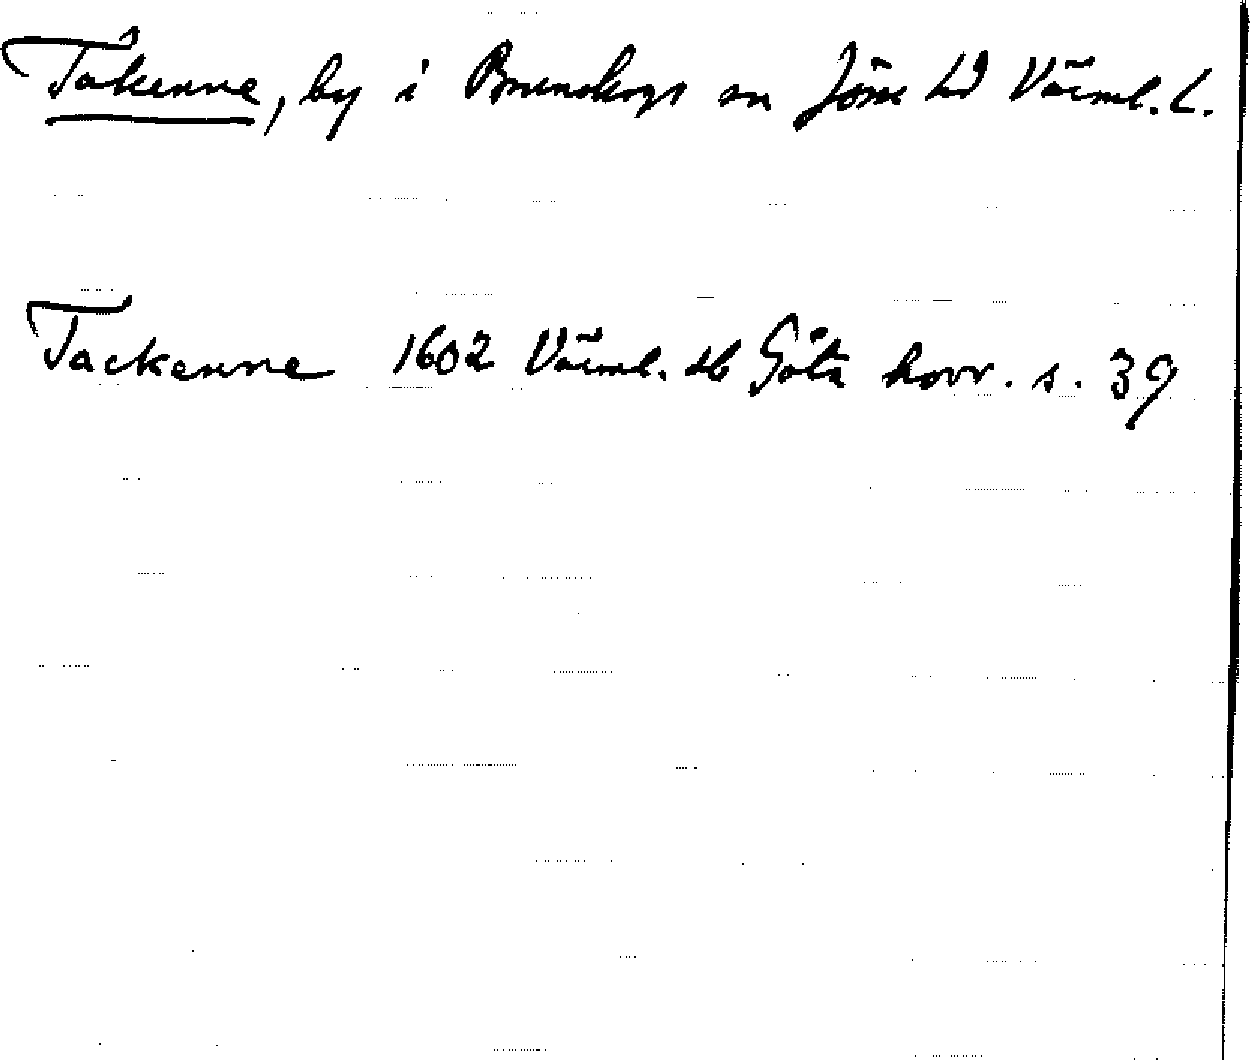 Tåkenne, by i Brunskogs sn Jösse hd Värml. L.
Tackenne 1602 Värml. db Göta hovr. s. 39